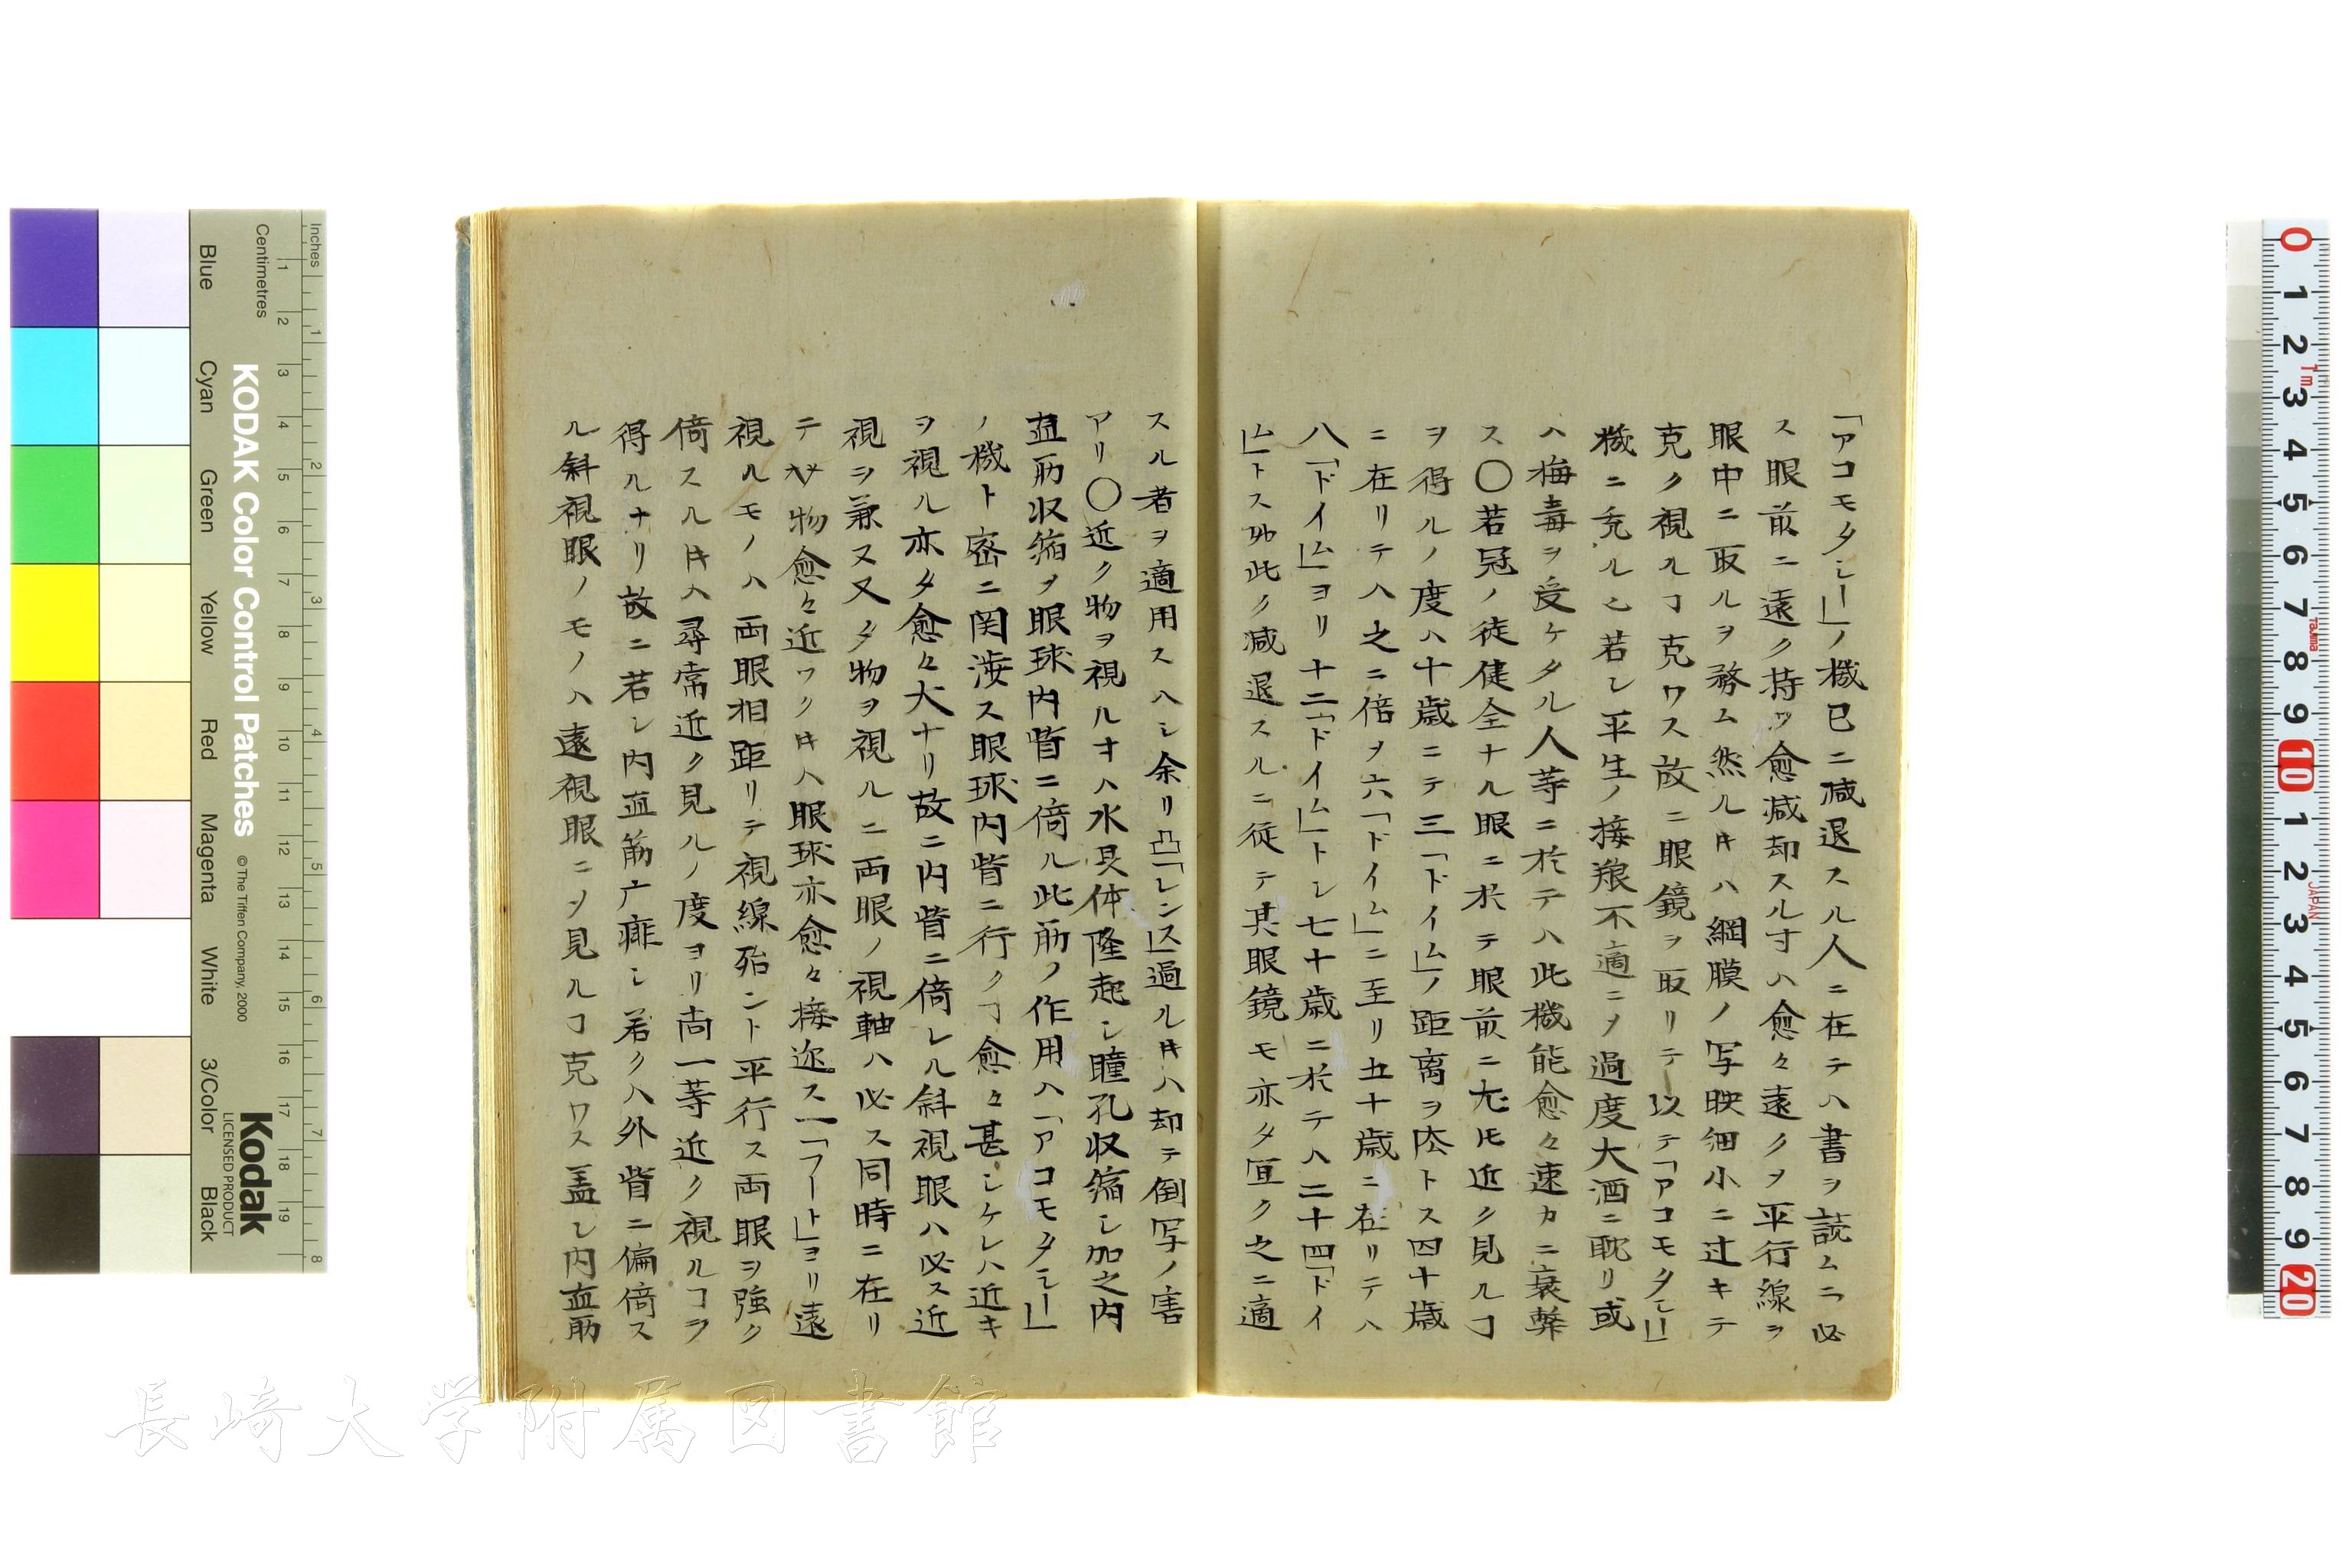 「アコモタシー」ノ機已ニ減退スル人ニ在テハ書ヲ読ムニ必
ス眼前ニ遠ク持ツ愈減却スル寸ハ愈々遠クヲ平行線ヲ
眼中ニ取ルヲ務ム然ル𪜈ハ網膜ノ写映細小ニ过キテ
克ク視ルヿ克ワス故ニ眼鏡ヲ取リテ以テ「アコモタシー」
機ニ充ルヒ若シ平生ノ接羪不適ニノ過度大酒ニ耽リ或
ハ梅毒ヲ受ケタル人等ニ於テハ此機能愈々速カニ衰弊
ス〇若冠ノ徒健全ナル眼ニ於テ眼前ニ尤𪜈近ク見ルヿ
ヲ得ルノ度ハ十歳ニテ三「ドイム」ノ距离ヲ㳒トス四十歳
ニ在リテハ之ニ倍ヲ六「ドイム」ニ至リ五十歳ニ在リテハ
八「ドイム」ヨリ十二「ドイム」トシ七十歳ニ於テハ二十四「ドイ
ム」トス如此ク減退スルニ従テ其眼鏡モ亦タ宜ク之ニ適
スル者ヲ適用スヘシ余リ凸「レンス」過ル𪜈ハ却テ倒写ノ害
アリ〇近ク物ヲ視ルオハ水晶体隆起シ瞳孔収縮シ加之内
直筋収縮ヲ眼球内眥ニ倚ル此筋ノ作用ハ「アコモタシー」
ノ機ト密ニ関渉ス眼球内眥ニ行クヿ愈々甚シケレハ近キ
ヲ視ル亦タ愈々大ナリ故ニ内眥ニ倚レル斜視眼ハ必ス近
視ヲ兼ヌ又タ物ヲ視ルニ両眼ノ視軸ハ必ス同時ニ在リ
テ 物愈々近ツク𪜈ハ眼球亦愈々接迩ス一「フート」ヨリ遠
視ルモノハ両眼相距リテ視線殆ント平行ス両眼ヲ強ク
倚スル𪜈ハ尋常近ク見ルノ度ヨリ尚一等近ク視ルヿヲ
得ルナリ故ニ若シ内直筋亡痱シ若クハ外眥ニ偏倚ス
ル斜視眼ノモノハ遠視眼ニヲ見ルヿ克ワス盖シ内直筋
Inches
Centimetres
KODAK Color Control Patches
© The Tiffen Company, 2000
Kodak
LICENSED PRODUCT
Blue
Cyan
Green
Yellow
Red
Magenta
White
3/Color
Black
長崎大学附属図書館